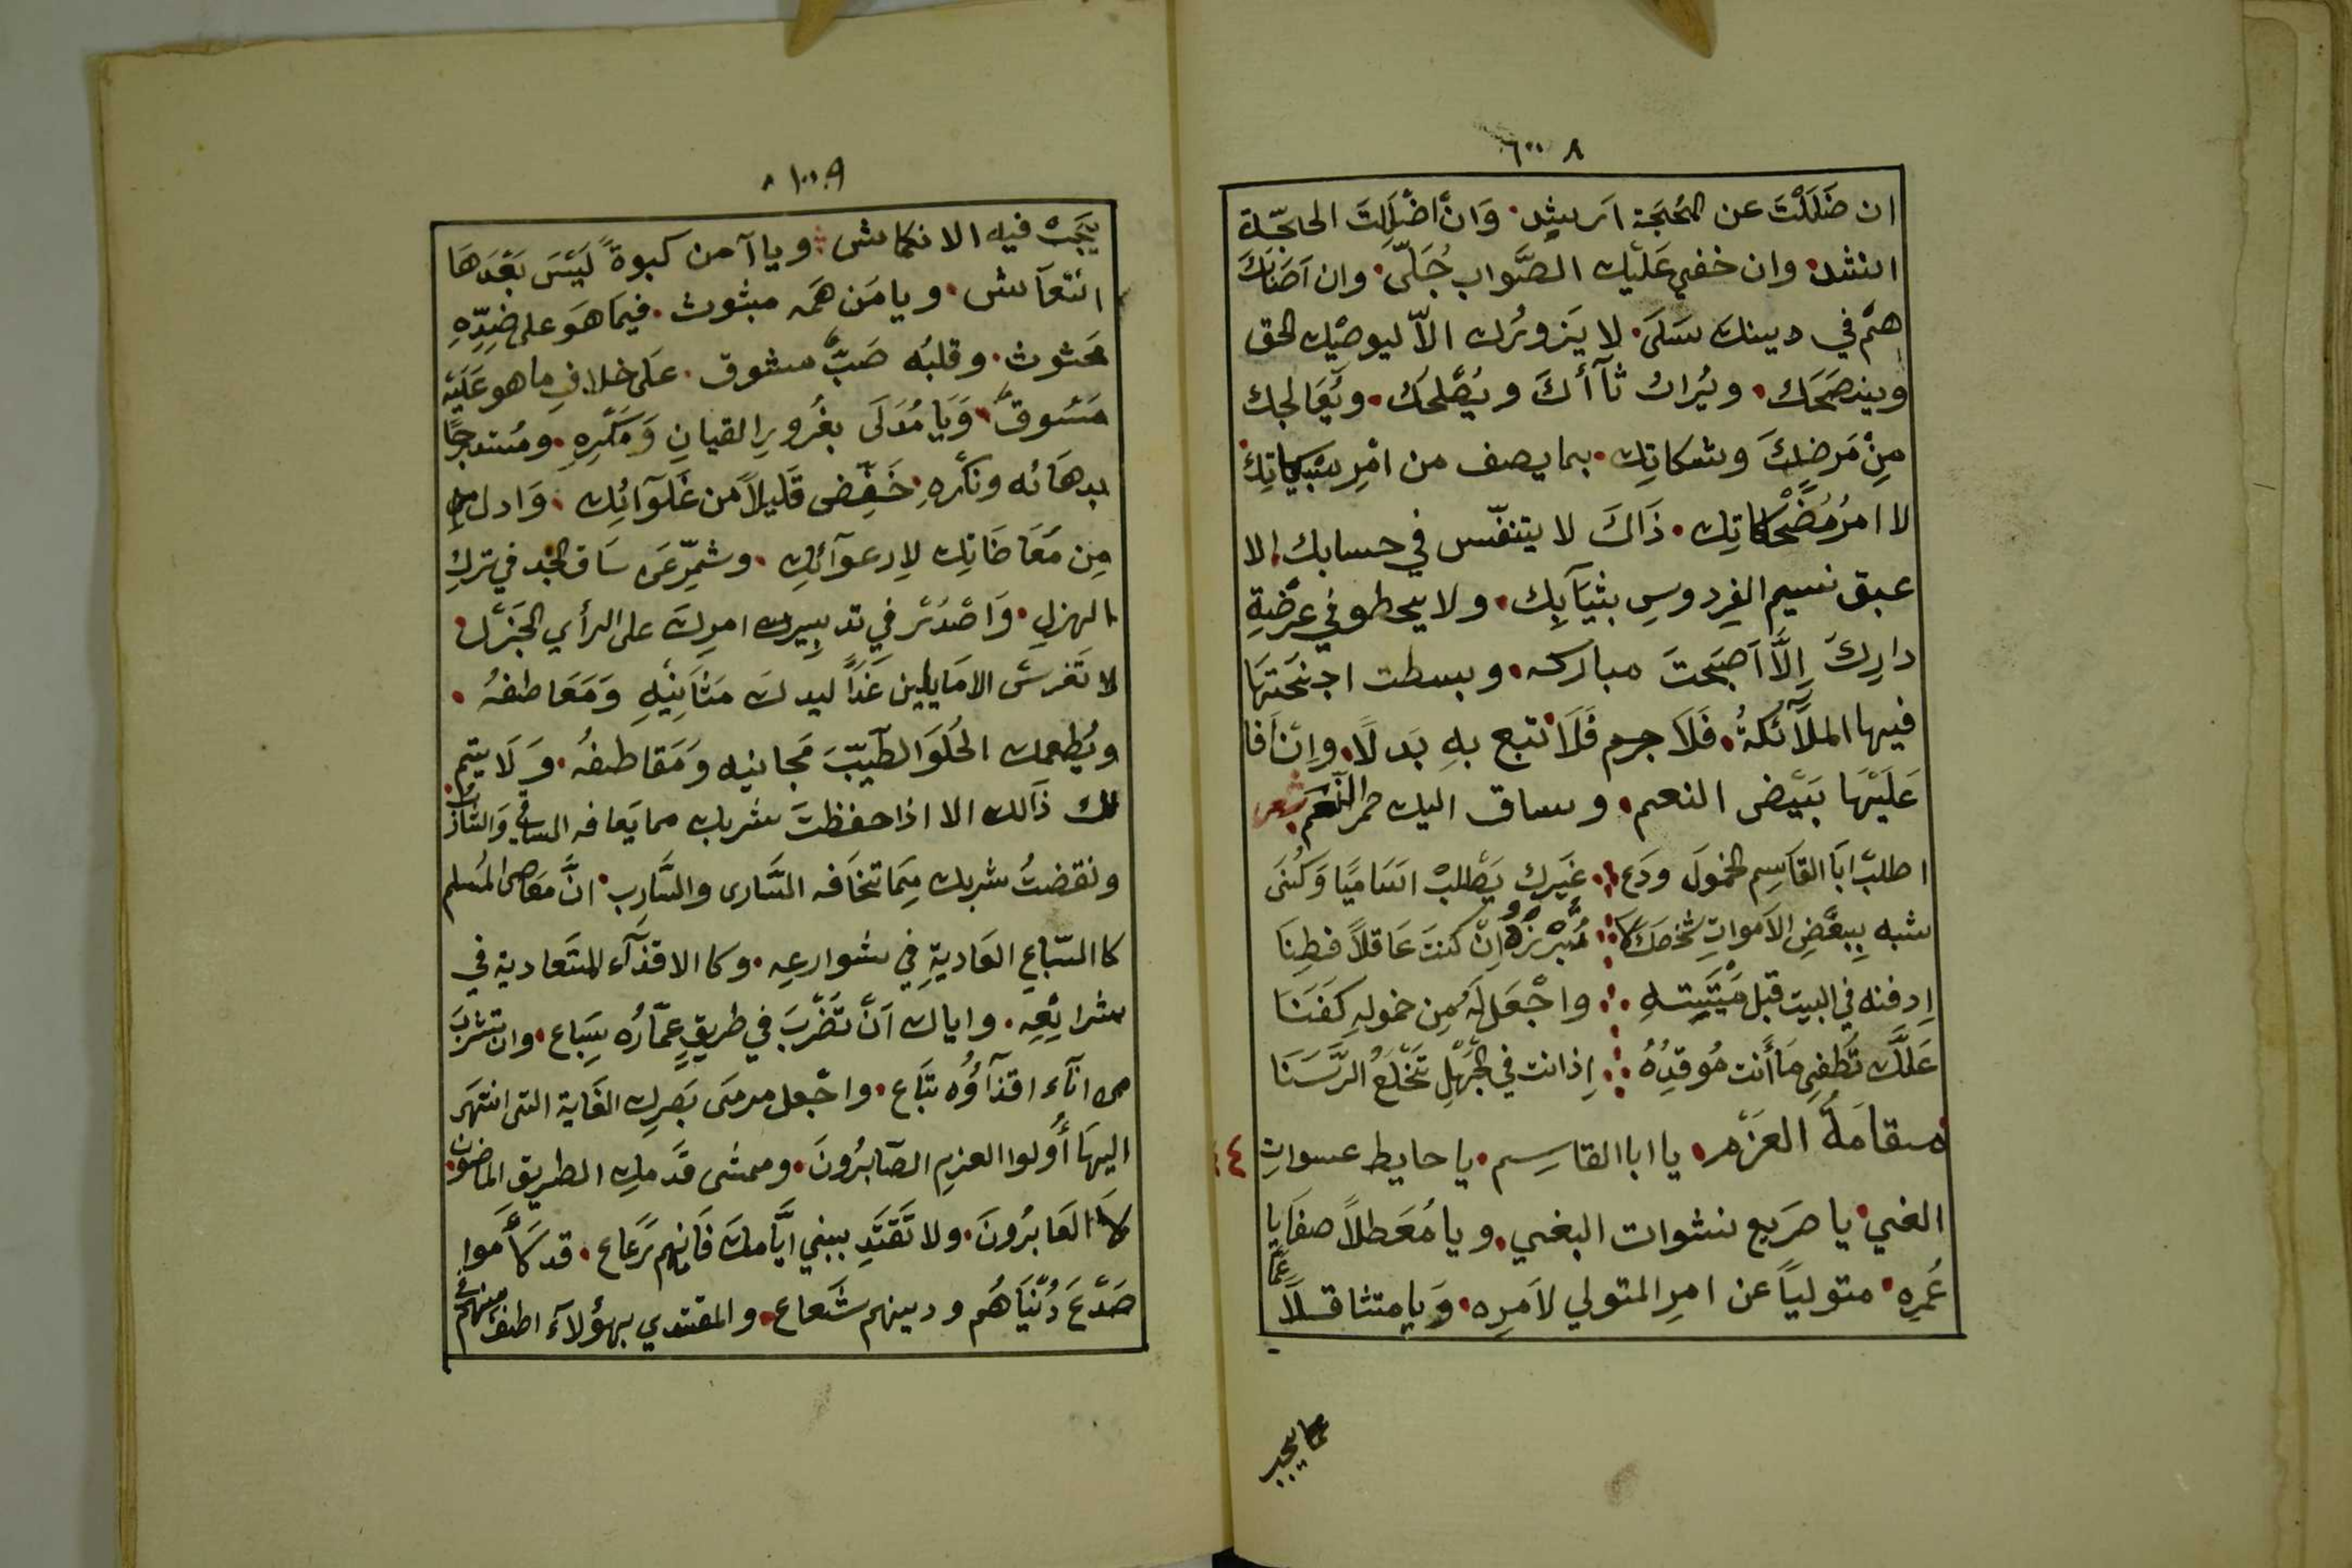 ان ضَلَلْتَ عن المُحجَّة ارشد. وَانْ اضْلَلتَ الحاجّة
انشد. وان خفي عَلَيْك الصَّواب جُلَّى. وان اَصَابَكَ
همٌّ في دينك سَلَّى. لا يَزورُك الاّ ليوصيْك الحق
وينصَحَك. ويُراب ثآأكَ ويُصْلحُك. ويُعَالجك
مِنْ مَرضِكَ وشكاتِك. بما يصف من امْر مُبْكياتِكَ
لا امرُ مُضْحكاتِك. ذَاكَ لا يتنفّس في حسابك الا
عبق نسيم الفِردوسِ بثيَآبِك. ولا يحطو في عرْضةِ
دارِكَ اِلَّا اَصبَحتَ مباركه. وبسطت اجنحَتَهَا
فيها الملآئكةُ. فَلَا جرم فَلَا تتبع بهِ بَدلًا. وانْ اَفا
عَلَيْهَا بَيْض النعم. وساق اليك حمر النَّعَم شعر
اطلبْ اَبَا القَاسِم الخمولَ ودَع ∴ غَيرك يَطْلبْ اسَاميًا وَكُنَى
شبه بِبعْضِ الاَمواتِ شخصَكَ لا ∴ تُبْرِزْهُ اِنْ كنتَ عَاقلاً فطِنَا
اِدفنه في البيت قبل مَيْتَتِهِ ∴ واجْعَل لَهُ مِن خمولِهِ كَفَنَا
عَلَّكَ تُطْفِي مَا أَنت مُوقدُهُ ∴ اِذ انت في الجَهْلِ تَخْلَعُ الرَّسَنَا
مقامَةُ العَزْم. يا ابا القاسِم. يا حايط عسوات
الغي. يا صَريع نشوات البغي. ويا مُعَطلاً صفَايا
عُمرِه. متولياً عن امرِ المتولي لاَمرِه. وَيا متثاقلاً عَمَّا
عما يجب
يَجَبْ فيه الانكماش. ويا آمن كبوةً لَيْسَ بَعْدَهَا
انتعآش. ويا مَن همّه مبثوث. فيما هَو على ضِدِّهِ
محثوث. وقلبُه صَبٌّ مشوق. عَلى خلافِ ما هو عَلَيْه
مَسُوقٌ. وَيَا مُدَلَى بغُرورِ القيانِ وَمَكْرِهِ. ومُستدرجًا
بدهَائه ونكْرهِ. خَفِّض قَليلاً من غَلَوآئِك. وَادل
مِن مَعَاضَاتِك لِارعوآئِك. وشمِّر عَن سَاق الجد في تركِ
الهزلِ. وَاصْدُرْ في تدبيرك امرِكَ على الرأي الجَزْل.
لا تَغرسْ الا مَا يلين غَدًا ليدكَ مَثَانِيْهِ وَمَعَاطفهُ.
ويُطعمك الحُلوَ الطَيّبَ مَجانيه وَمَقاطفُه. وَلَا يتم
لك ذَالك الا اذا حفظتَ شربك مما يَعافه السآئِ وَالشارب.
ونفضتُ شربك مِمَا تخَافه السَّارى والسَّارِب. انَّ مَعاصى المُسلم
كا السّباعِ العَاديةِ في شوارعهِ. وكا الاقذآء المتَعاديه في
شرائعِه. واياك اَنْ تَضْرِبَ في طريقٍ عمّارُه سِبَاع. وان تشربَ
من انآء اقذآؤُه تبَاع. واجْعل مرمَى بَصَرِك الغَاية التى انتهَى
اليهَا أُولوا العزمِ الصَابرُونَ. وممشى قَدمكِ الطريق الماضون
لَا العَابرُونَ. ولا تَقتَدِ ببني ايَّامكَ فَانهم رَعَاع. قد رَأموا
صَدْعَ دُنْيَاهُم ودينهم شَعاع. والمقتدي بهؤلآء اطفُ منهم